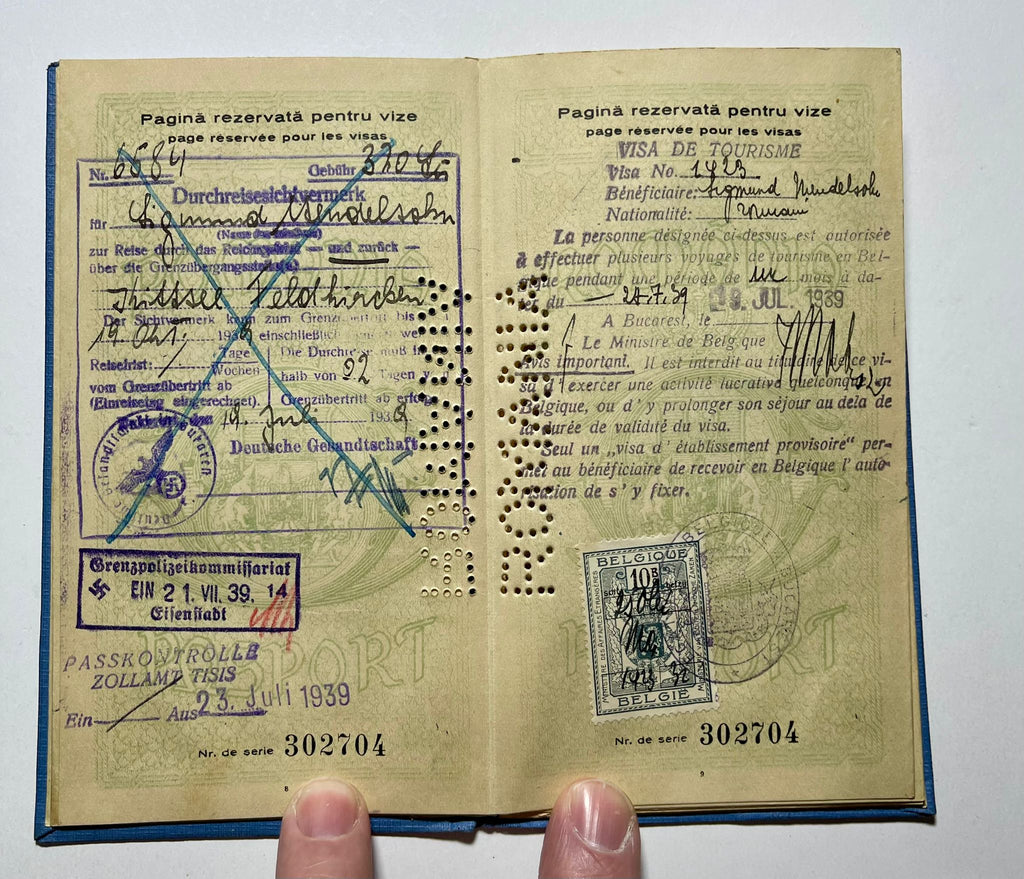 Pagină rezervată pentru vize
page réservée pour les visas
Nr. 6584 Gebühr 320 Lei
Durchreisesichtvermerk
für Sigmund Mendelsohn
zur Reise durch das Reichsgebiet — und zurück —
über die Grenzübergangsstelle(n)
Kittsee Feldkirchen
Der Sichtvermerk kann zum Grenzübertritt bis
19. Okt. 193 einschließlich
Reisefrist: Tage Die Durchreise muß in
Wochen halb von 92 Tagen
vom Grenzübertritt ab Grenzübertritt ab erfolg
(Einreisetag eingerechnet).
19. Juli 1939
Deutsche Gesandtschaft
Grenzpolizeikommissariat
EIN 21. VII. 39. 14
Eisenstadt
PASSKONTROLLE
ZOLLAMT TISIS
Ein Aus 23. Juli 1939
Nr. de serie 302704
8
ROMANIA
Pagină rezervată pentru vize
page réservée pour les visas
VISA DE TOURISME
Visa No. 1423
Bénéficiaire: Sigmund Mendelsohn
Nationalité: roumain
La personne désignée ci-dessus est autorisée
à effectuer plusieurs voyages de tourisme en Bel-
gique pendant une période de six mois à da-
ter du — 24.7.39 19. JUL. 1939
A Bucarest, le
Le Ministre de Belgique
Avis important. Il est interdit au titulaire de ce vi-
sa d'exercer une activité lucrative quelconque en
Belgique, ou d'y prolonger son séjour au dela de
la durée de validité du visa.
Seul un „visa d'établissement provisoire" per-
met au bénéficiaire de recevoir en Belgique l'auto-
risation de s'y fixer.
ROMANIA
BELGIQUE
10 B
MINISTÈRE DES AFFAIRES ÉTRANGÈRES
BELGIË
BELGIQUE
PASSPORT
Nr. de serie 302704
9